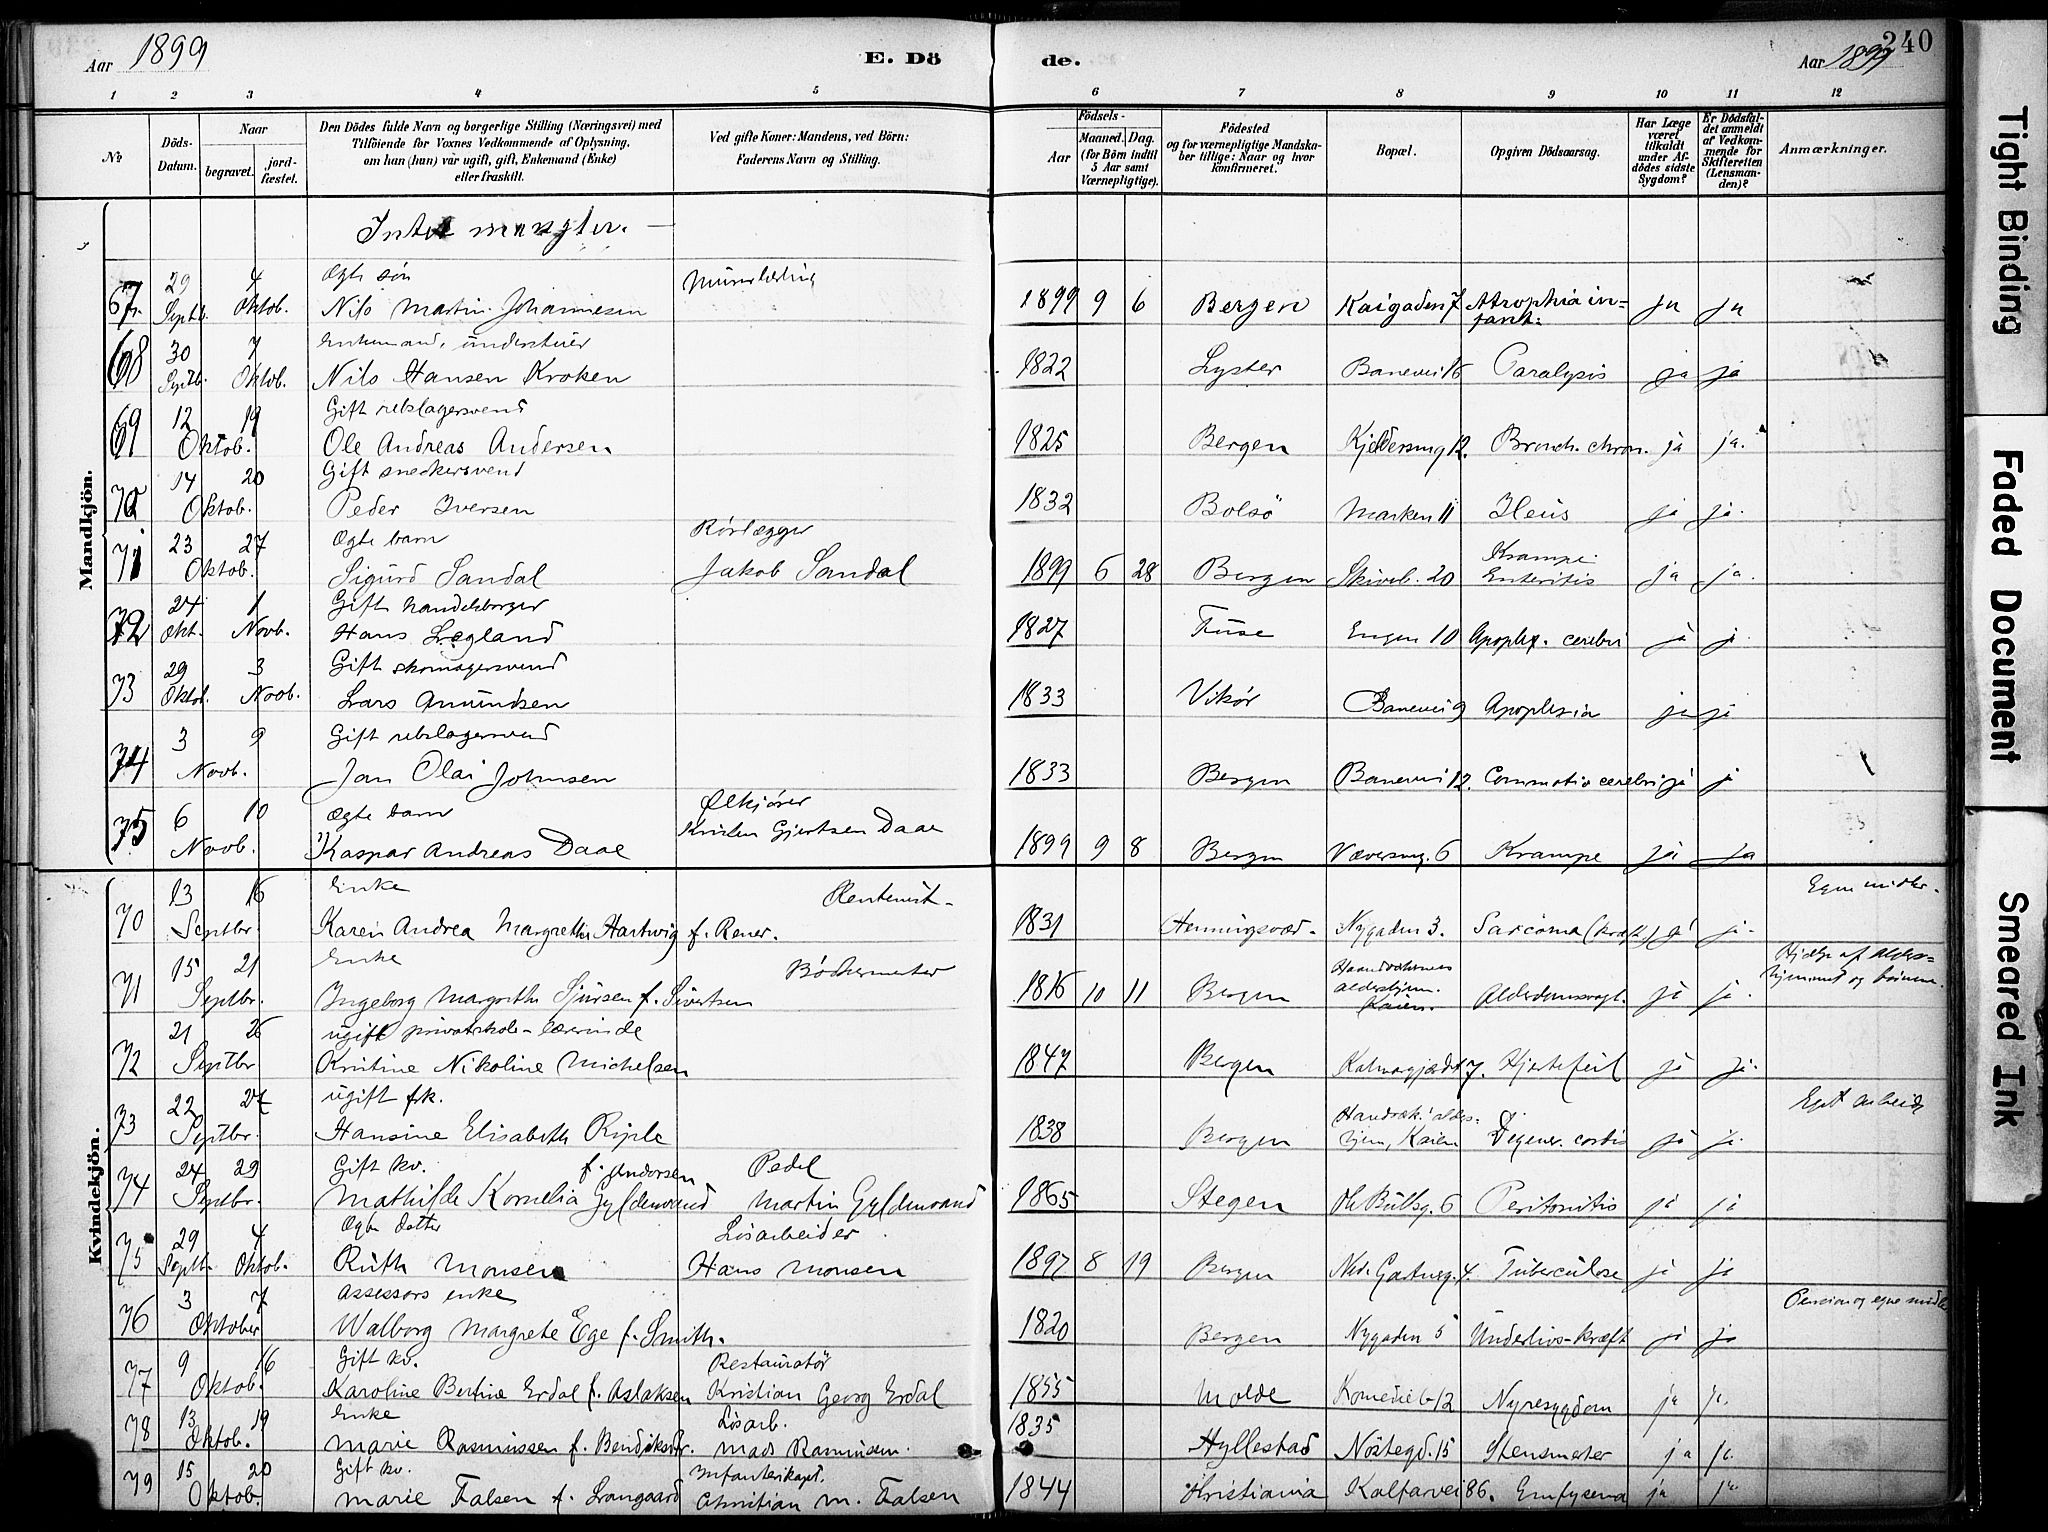 240
Aar 1899
E. Dö
de.
Aar 1899
1 2 3 4 5 6 7 8 9 10 11 12
No
Döds-
Datum.
Naar
begravet.
jord-
fæstet.
Den Dödes fulde Navn og borgerlige Stilling (Næringsvei) med
Tilföiende for Voxnes Vedkommende af Oplysning,
om han (hun) var ugift, gift, Enkemand (Enke)
eller fraskilt.
Ved gifte Koner: Mandens, ved Börn:
Faderens Navn og Stilling.
Födsels-
Aar
Maaned. Dag.
(for Börn indtil
5 Aar samt
Værnepligtige).
Födested
og for værnepligtige Mandska-
ber tillige: Naar og hvor
konfirmeret.
Bopæl.
Opgiven Dödsaarsag.
Har Læge
været
tilkaldt
under Af-
dödes sidste
Sygdom?
Er Dödsfal-
det anmeldt
af Vedkom-
mende for
Skifteretten
(Lensman-
den)?
Anmærkninger.
Mandkjön.
Intet mangler. —
29 4 Ægte søn
67 Septb. Oktob. Nils Martin Johannesen 1899 9 6 Bergen Kaigaden 7 Atrophia in-
fant: ja ja
30 7 Enkemand, understøier
68 Septb. Oktob. Nils Hansen Kroken 1822 Lyster Banevei 16 Paralysis ja ja
12 19 Gift rebslagersvend
69 Oktob. Ole Andreas Andersen 1825 Bergen 12. Bronch. chron. ja ja.
14 20 Gift snedkersvend
70 Oktob. Peder Iversen 1832 Bolsö Marken 11 Ileus ja ja.
23 27 Ægte barn Rørlægger
71 Oktob. Sigurd Sandal Jakob Sandal 1899 6 28 Bergen Skiveb. 20 Krampe
Enteritis ja ja.
24 1 Gift handelsborger
72 Okt. Novb. Hans Lægland 1827 Fuse Engen 10 Apoplex. cerebri ja ja
29 3 Gift skomagersvend
73 Oktob. Novb. Lars Amundsen 1833 Vikør Banevei 9 Apoplexia ja ja
3 9 Gift rebslagersvend
74 Novb. Jan Olai Johnsen 1833 Bergen Banevei 12. Commotio cerebri ja ja
6 10 Ægte barn Ølkjører
75 Novb. Kaspar Andreas Daae Kristen Gjertsen Daae 1899 9 8 Bergen Væversmg. 6 Krampe ja ja
Kvindekjön.
13 16 Enke Rentenist- Egne midler.
70 Septbr. Karen Andrea Margrethe Hartwig f. Rener. 1831 Henningsvær. Nygaden 3. Sarcoma (kræft) ja ja.
15 21 Enke Bødkermester Hjælp af alders-
hjemmet og børnene
71 Septbr. Ingeborg Margrethe Sjursen f. Sivertsen 1816 10 11 Bergen Haandværkernes
aldershjem.
Kaien. Alderdomssvagh. ja ja.
21 26 ugift privatskole-lærerinde
72 Septbr Kristine Nikoline Michelsen 1847 Bergen Kalvargjærdet 7. Hjertefeil ja ja.
22 27 ugift frk. Eget arbeide
73 Septbr. Hansine Elisabeth Riple 1838 Bergen Handværk. alders-
hjem, Kaien Degener. cordis ja ja.
24 29 Gift kv. f. Andorsen Pedel
74 Septbr. Mathilde Kornelia Gyldenvand Martin Gyldenvand 1865 Stegen Ole Bullsg. 6 Peritonitis ja ja
29 4 Ægte datter Løsarbeider
75 Septb. Oktob. Ruth Monsen Hans Monsen 1897 8 19 Bergen 4. Tuberculose ja ja
3 7 Assessors enke Pension og egne midler
76 Oktober Walborg Margrete Ege f. Smith. 1820 Bergen Nygaden 5 Underlivs-kræft ja ja
9 16 Gift kv. Restauratør
77 Oktob. Karoline Bertine Erdal f. Aslaksen Kristian Georg Erdal 1855 Molde Komedieb. 12 Nyresygdom ja ja.
13 19 Enke Løsarb.
78 Oktob. Marie Rasmussen f. Bendiksdr. Mads Rasmussen. 1835 Hyllestad Nöstegd. 15 Stensmerter ja ja.
15 20 Gift kv. Infanterikapt.
79 Oktob. Marie Falsen f. Langaard Christian M. Falsen 1844 Kristiania Kalfarvei 86. Emfysema ja ja
Tight Binding
Faded Document
Smeared Ink